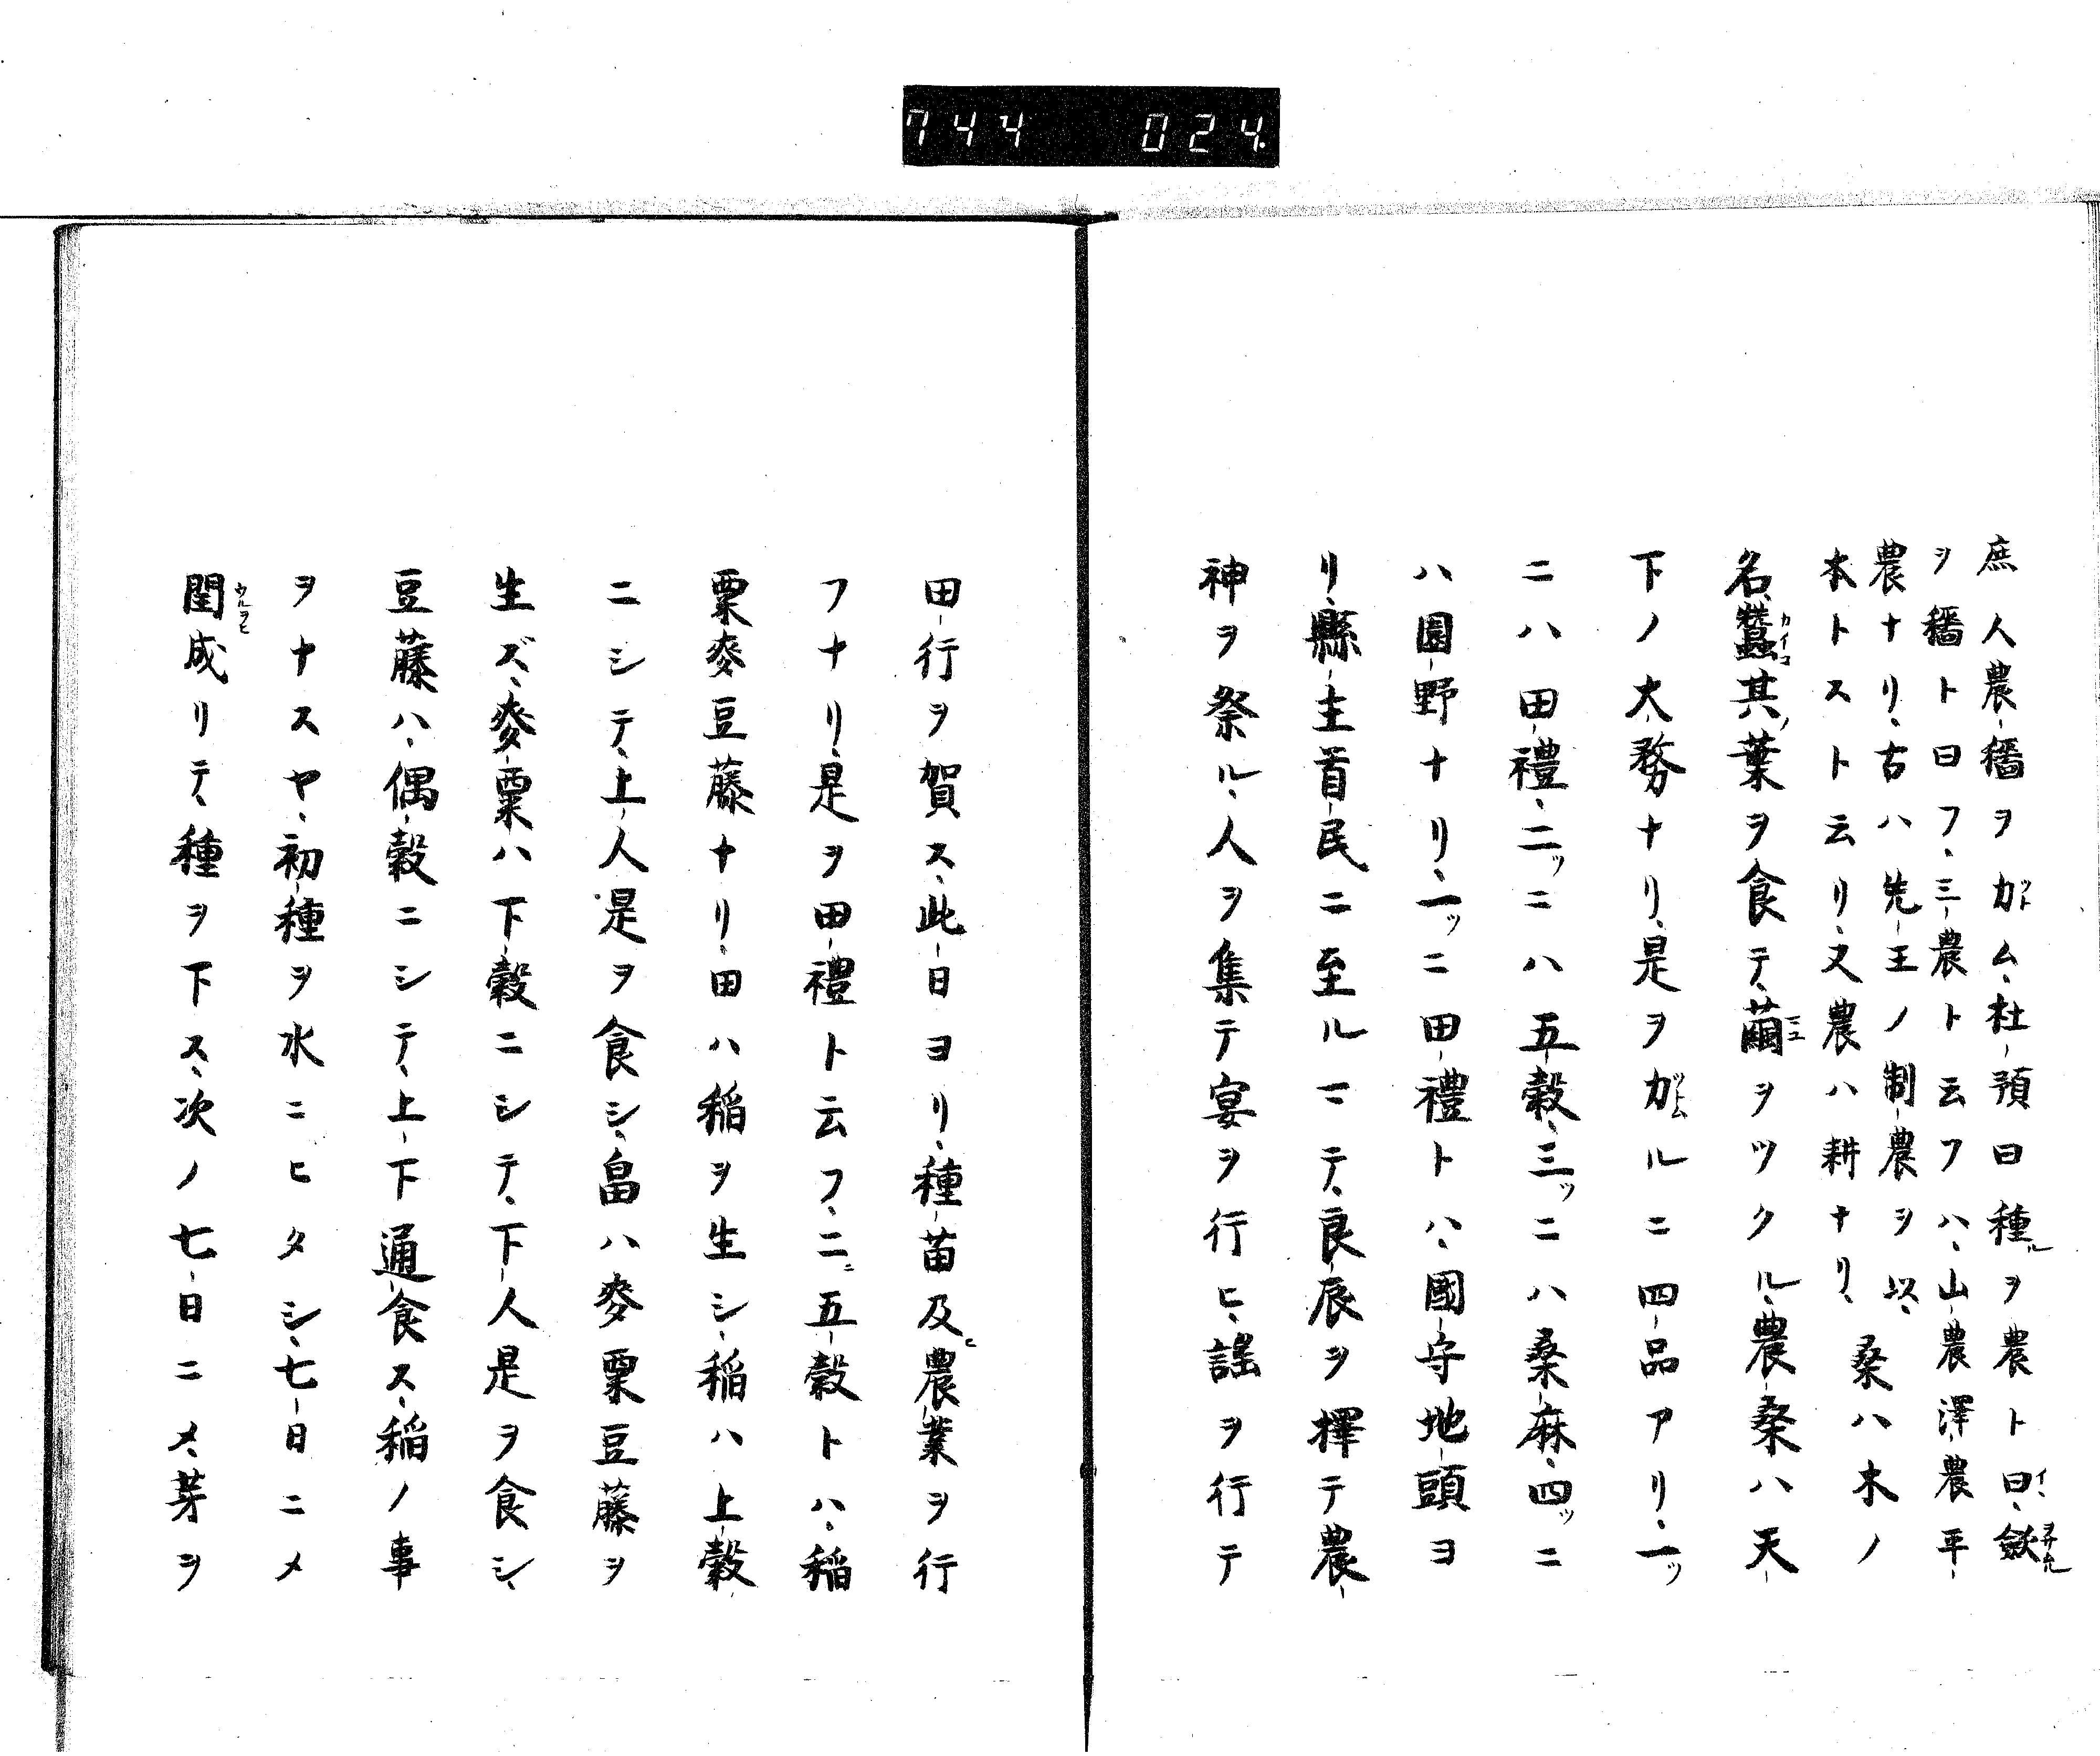 744 024.
庶人農-穡ヲ力ム、杜-預曰種ルヲ農ト曰、歛
ヲ穡ト曰フ、三-農ト云フハ、山-農澤-農平-
農ナリ、古ハ先-王ノ制-農ヲ以、
本トスト云リ、又農ハ耕ナリ、桑ハ木ノ
名、蠶其ノ葉ヲ食テ、繭ヲツクル、農-桑ハ天-
下ノ大-務ナリ、是ヲ力ルニ四品アリ、一ッ
ニハ田-禮、二ッニハ五-穀、三ッニハ桑-麻、四ッニ
ハ園-野ナリ、一ッニ田-禮トハ、國-守地-頭ヨ
リ、縣-主首-民ニ至ルマテ、良-辰ヲ擇テ農-
神ヲ祭ル、人ヲ集テ宴ヲ行ヒ、謡ヲ行テ
田-行ヲ賀ス、此-日ヨリ、種-苗及ヒ農-業ヲ行
フナリ、是ヲ田-禮ト云フ、二ニ五-穀トハ、稲
粟麥豆藤ナリ、田ハ稲ヲ生シ、稲ハ上-穀
ニシテ、上-人是ヲ食シ、畠ハ麥粟豆藤ヲ
生ズ、麥-粟ハ下-穀ニシテ、下-人是ヲ食シ、
豆藤ハ、偶-穀ニシテ、上-下通-食ス、稲ノ事
ヲナスヤ、初-種ヲ水ニヒタシ、七-日ニメ
閏成リテ、種ヲ下ス、次ノ七-日ニメ、芽ヲ